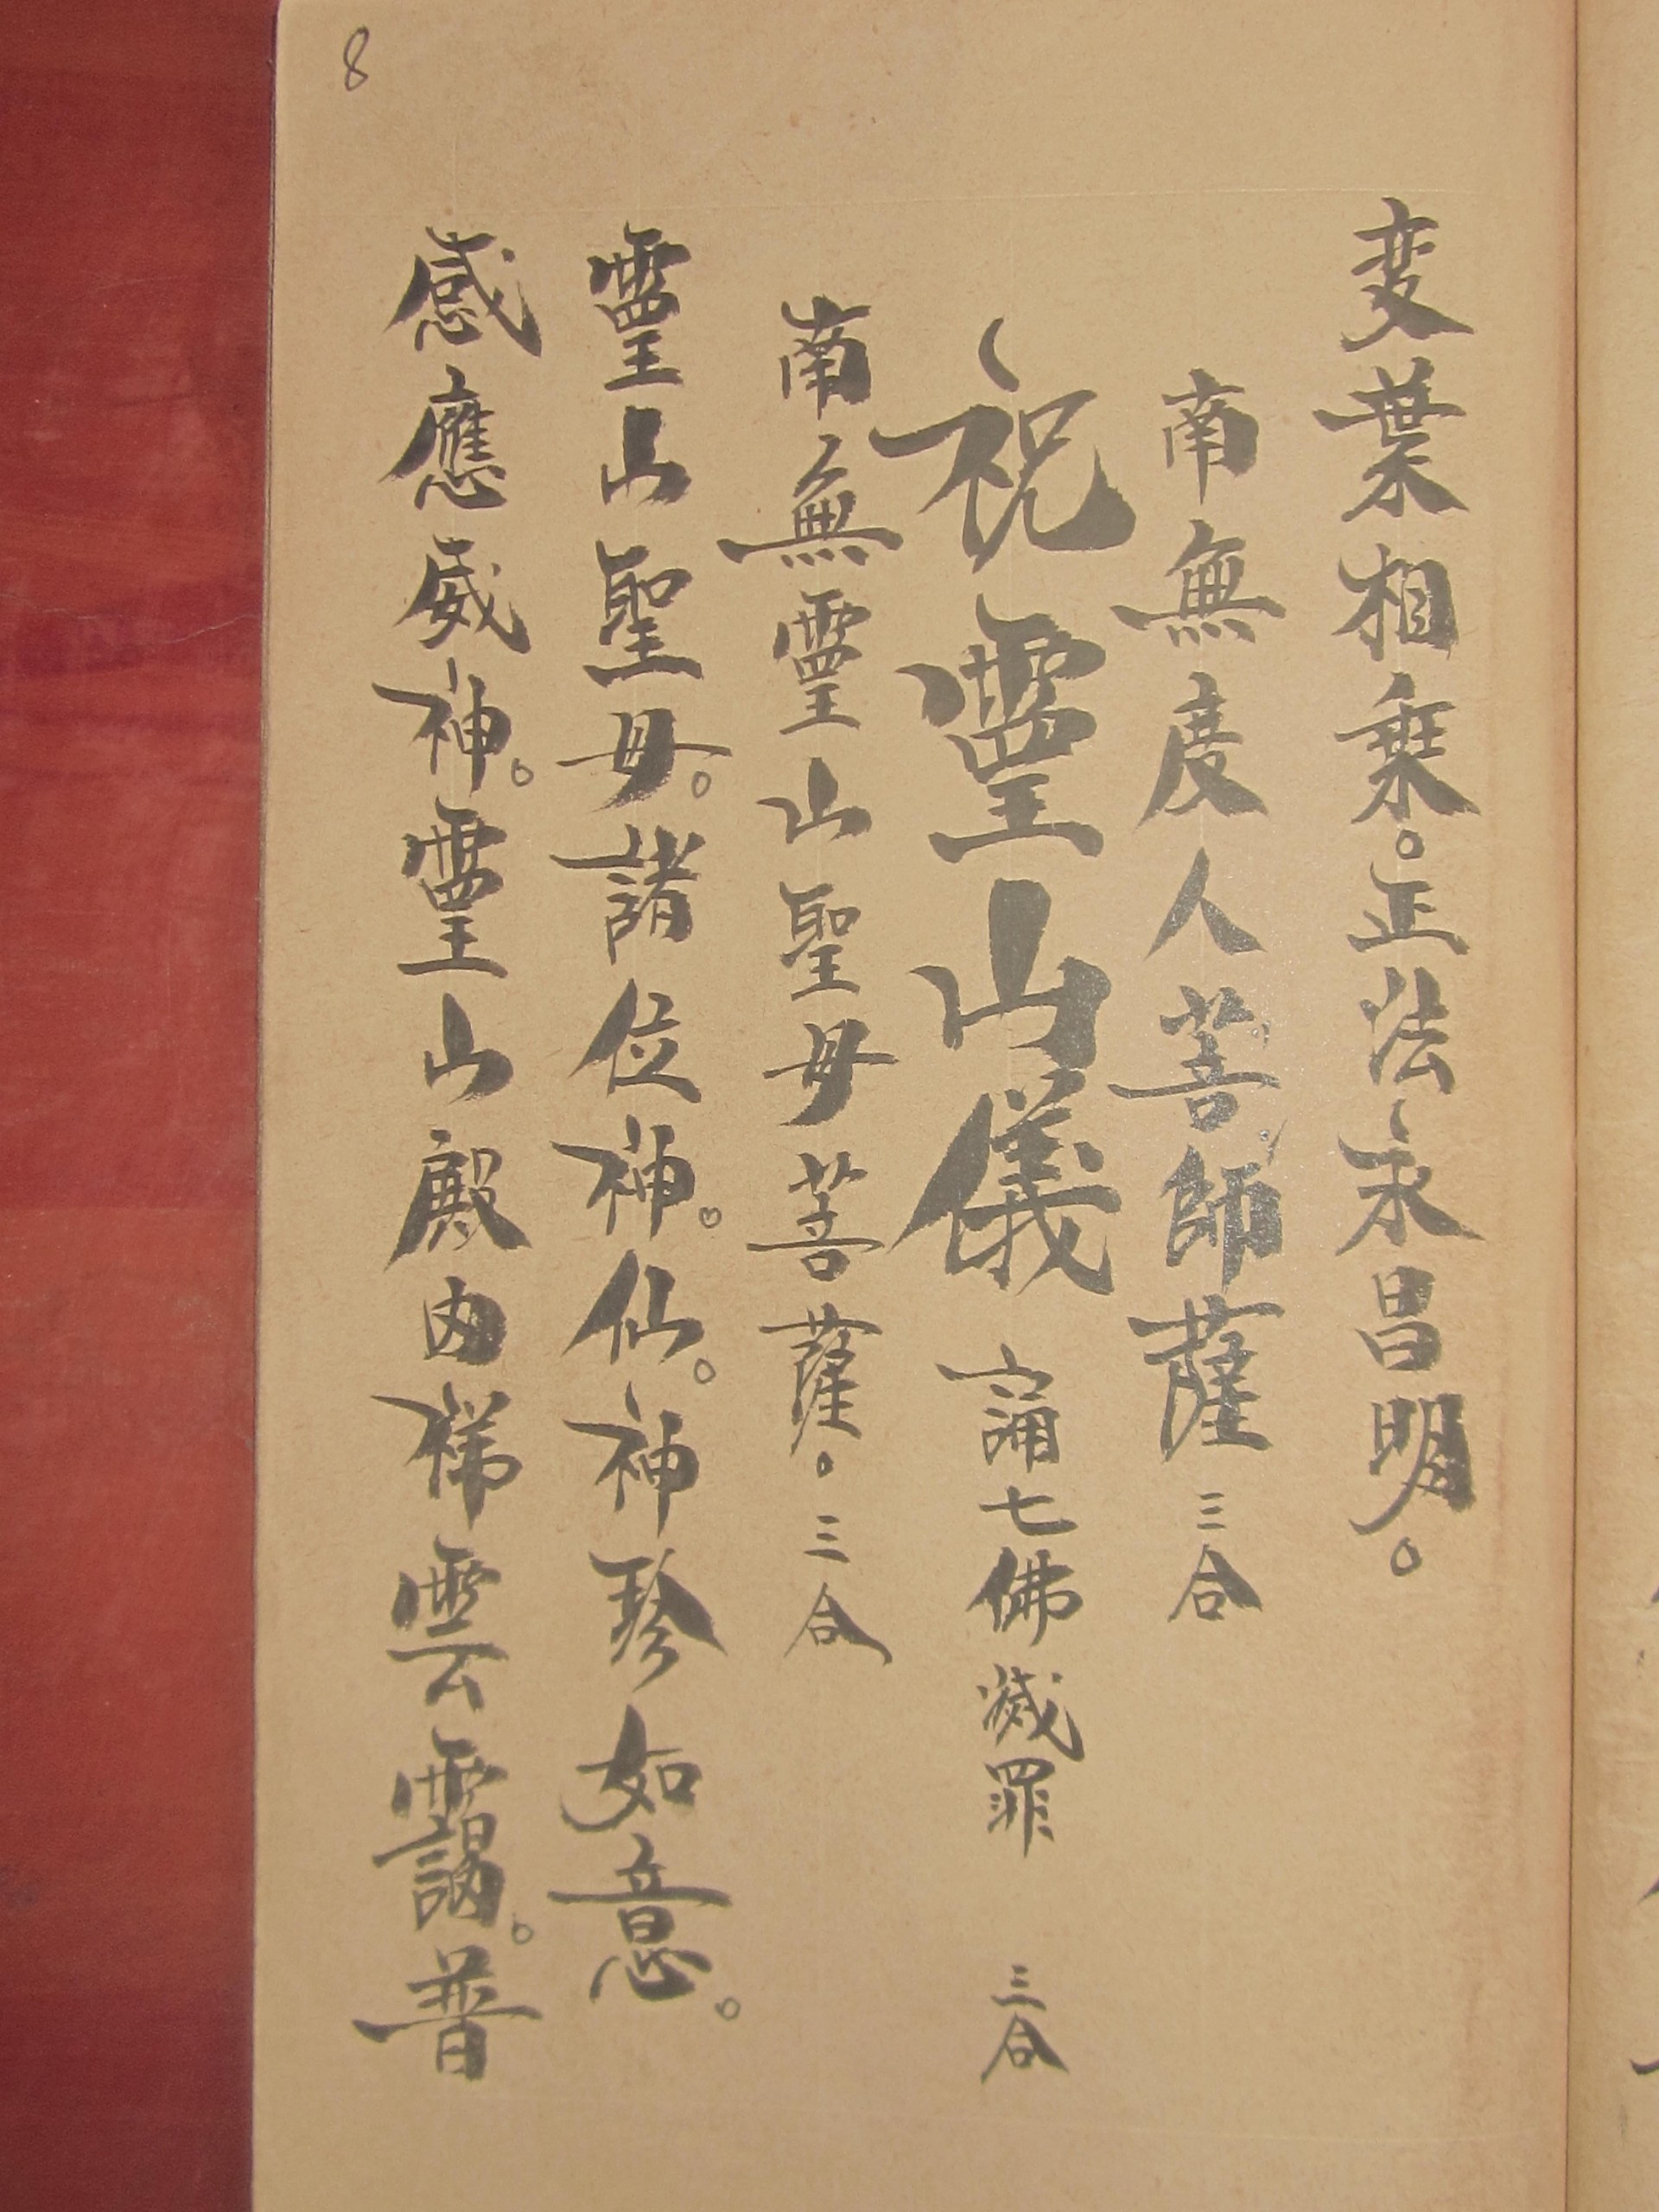 8
变葉相乘。正法永昌明。
南無度人菩師薩 三合
祝靈山儀 誦七佛滅罪 三合
南無靈山聖母菩薩。三合
靈山聖母。諸位神。仙。神珍如意。
感應威神。靈山殿内梯雲靄。普